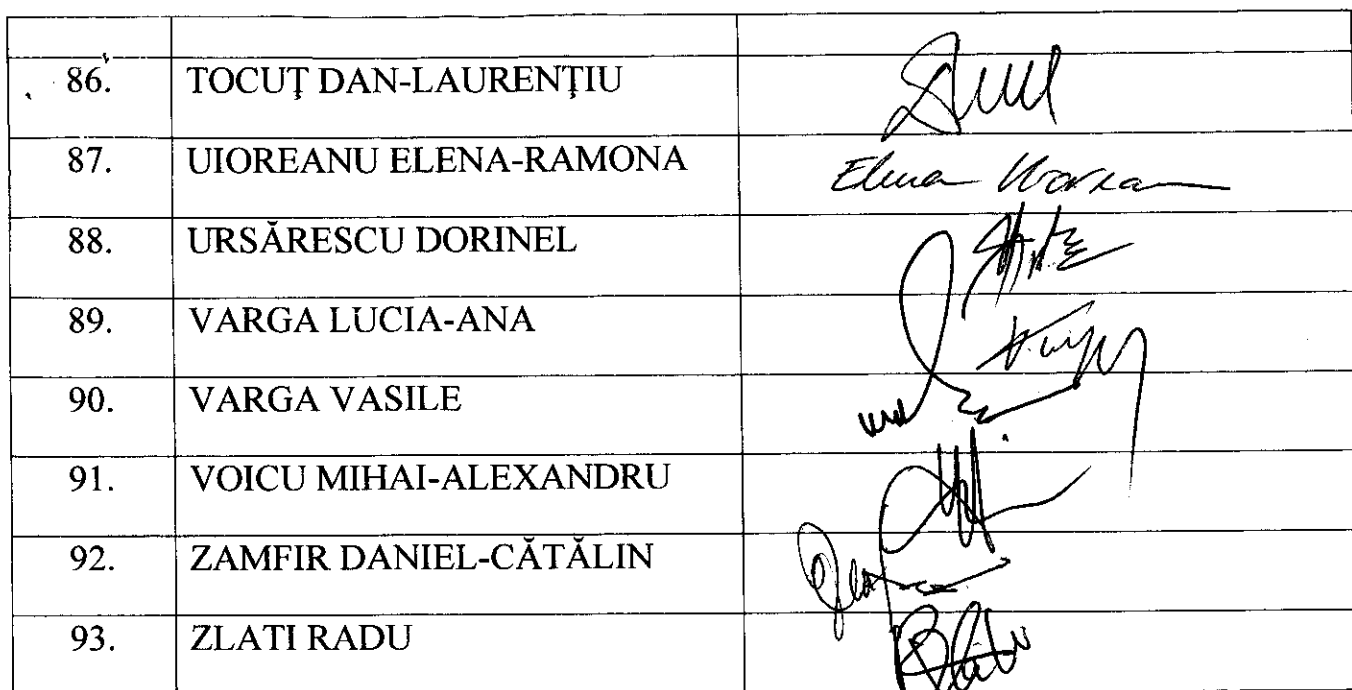 86. TOCUŢ DAN-LAURENŢIU
87. UIOREANU ELENA-RAMONA Elena
88. URSĂRESCU DORINEL
89. VARGA LUCIA-ANA
90. VARGA VASILE
91. VOICU MIHAI-ALEXANDRU
92. ZAMFIR DANIEL-CĂTĂLIN
93. ZLATI RADU